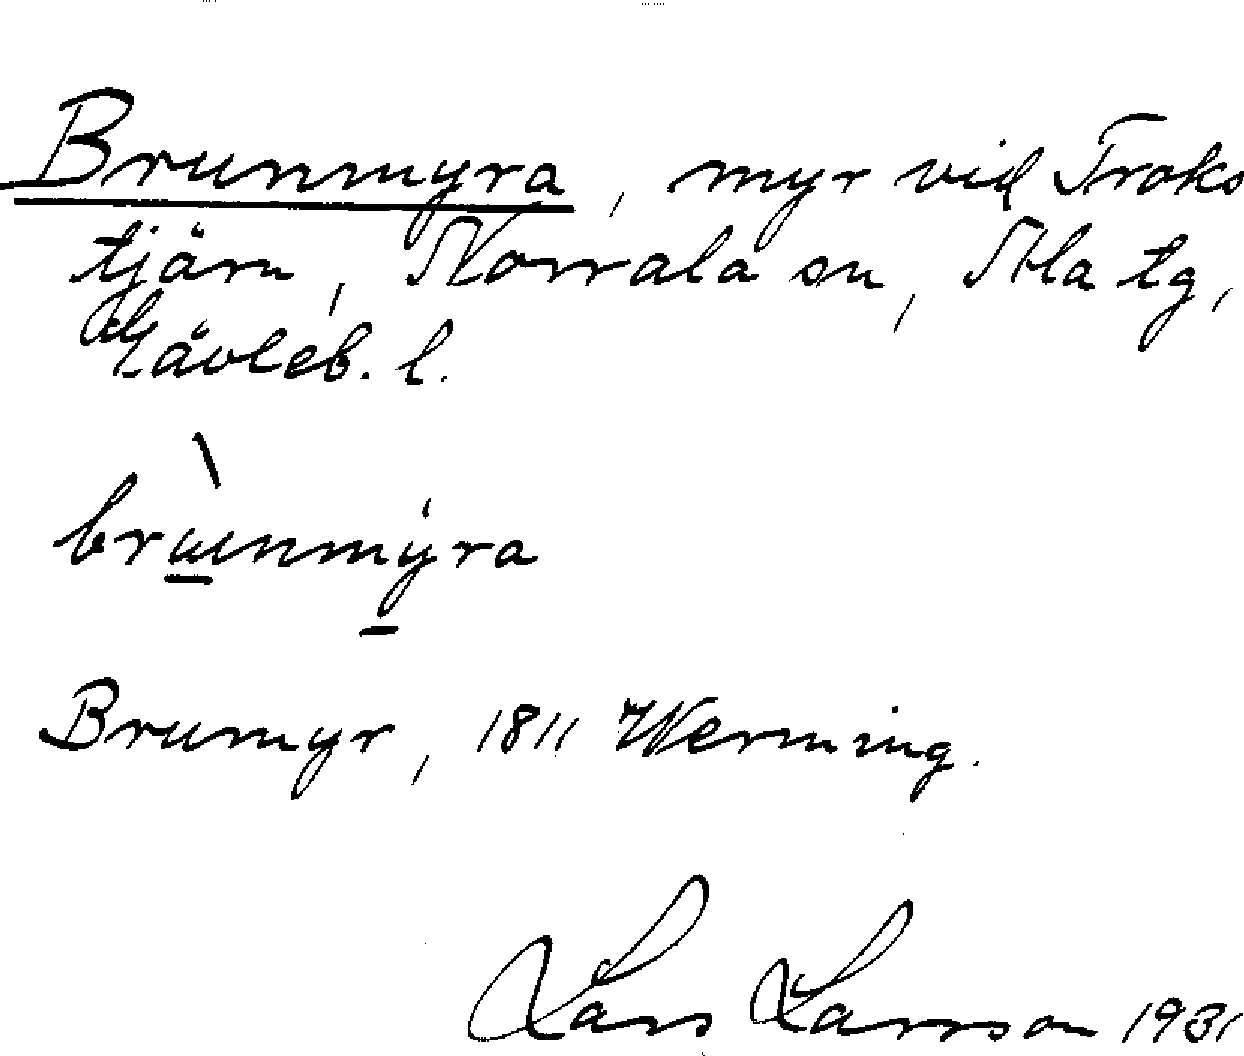 Brunmyra, myr vid Troks
tjärn, Norrala sn, Ala tg,
Gävleb. l.
brunmyra
Brumyr, 1811 Werming.
Lars Larsson 1931